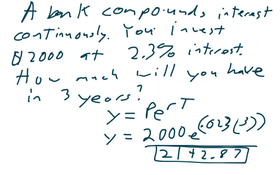 A bank compounds interest
continuously. You invest
$2000 at 2.3% interest.
How much will you have
in 3 years?
y = Pe^rT
y = 2000e^(.023(3))
2142.87